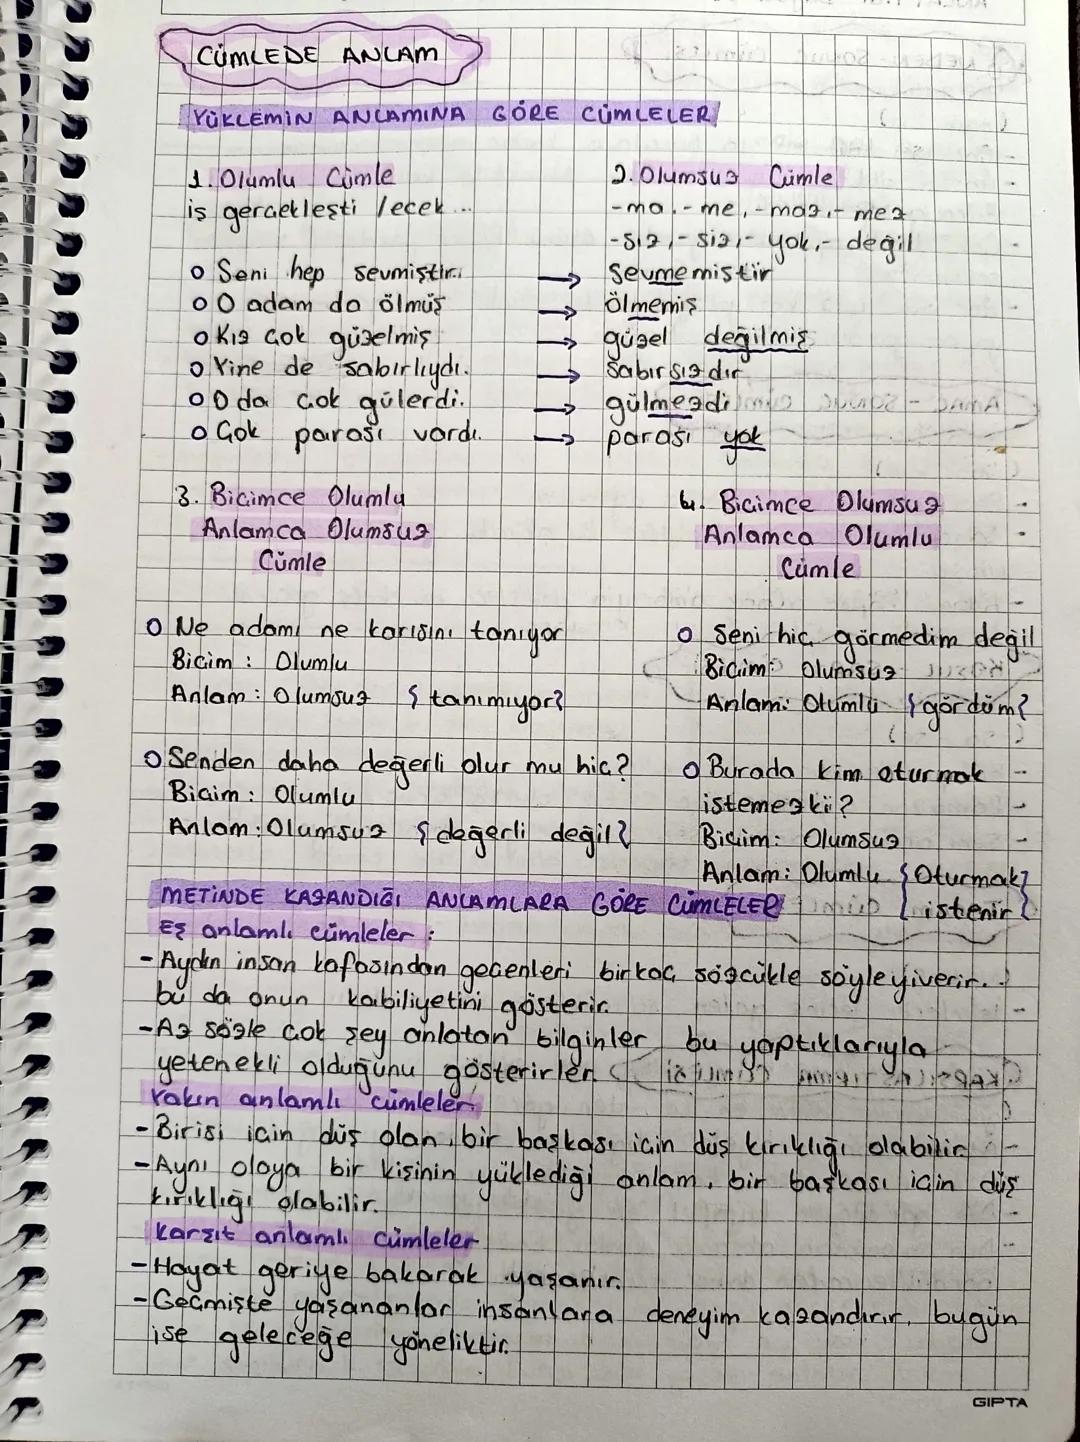 CÜMLEDE ANLAM
YÜKLEMİN ANLAMINA GÖRE CÜMLELER
1. Olumlu Cümle
iş gerçekleşti /ecek...
2. Olumsuz Cümle
-ma, -me, -maz, -mez
-sız, -siz, - yok, - değil
o Seni hep sevmiştir. → Sevmemiştir
o O adam da ölmüş → ölmemiş
o Kız çok güzelmiş → güzel değilmiş
o Yine de sabırlıydı. → Sabırsızdır
o O da çok gülerdi. → gülmezdi
o Çok parası vardı. → parası yok
3. Biçimce Olumlu
Anlamca Olumsuz
Cümle
o Ne adamı ne karısını tanıyor
Biçim : Olumlu
Anlam : Olumsuz { tanımıyor }
o Senden daha değerli olur mu hiç?
Biçim : Olumlu
Anlam : Olumsuz { değerli değil }
4. Biçimce Olumsuz
Anlamca Olumlu
Cümle
o Seni hiç görmedim değil
Biçim: Olumsuz
Anlam: Olumlu { gördüm }
o Burada kim oturmak
istemezki?
Biçim: Olumsuz
Anlam: Olumlu { Oturmak
istenir }
METİNDE KAZANDIĞI ANLAMLARA GÖRE CÜMLELER
Eş anlamlı cümleler :
- Aydın insan kafasından geçenleri birkaç sözcükle söyleyiverir.
bu da onun kabiliyetini gösterir.
- Az sözle çok şey anlatan bilginler bu yaptıklarıyla
yetenekli olduğunu gösterirler.
Yakın anlamlı cümleler
- Birisi için düş olan, bir başkası için düş kırıklığı olabilir.
- Aynı olaya bir kişinin yüklediği anlam, bir başkası için düş
kırıklığı olabilir.
Karşıt anlamlı cümleler
- Hayat geriye bakarak yaşanır.
- Geçmişte yaşananlar insanlara deneyim kazandırır, bugün
ise geleceğe yöneliktir.
GIPTA